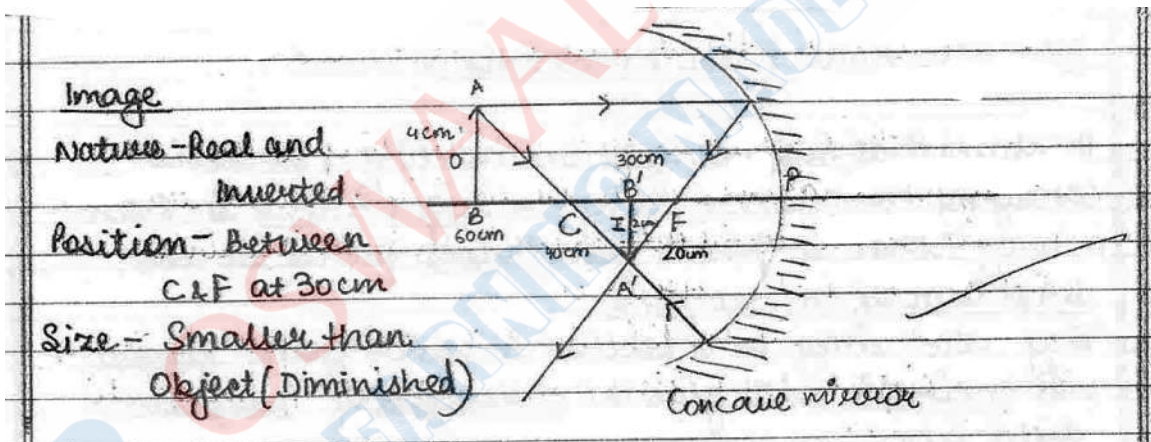 Image
Nature - Real and
Inverted
Position - Between
C & F at 30cm
Size - Smaller than
Object (Diminished)
A
4cm
O
B
60cm
C
40cm
30cm
B'
I
2cm
F
20cm
A'
P
Concave mirror
OSWAAL
LEARNING MADE